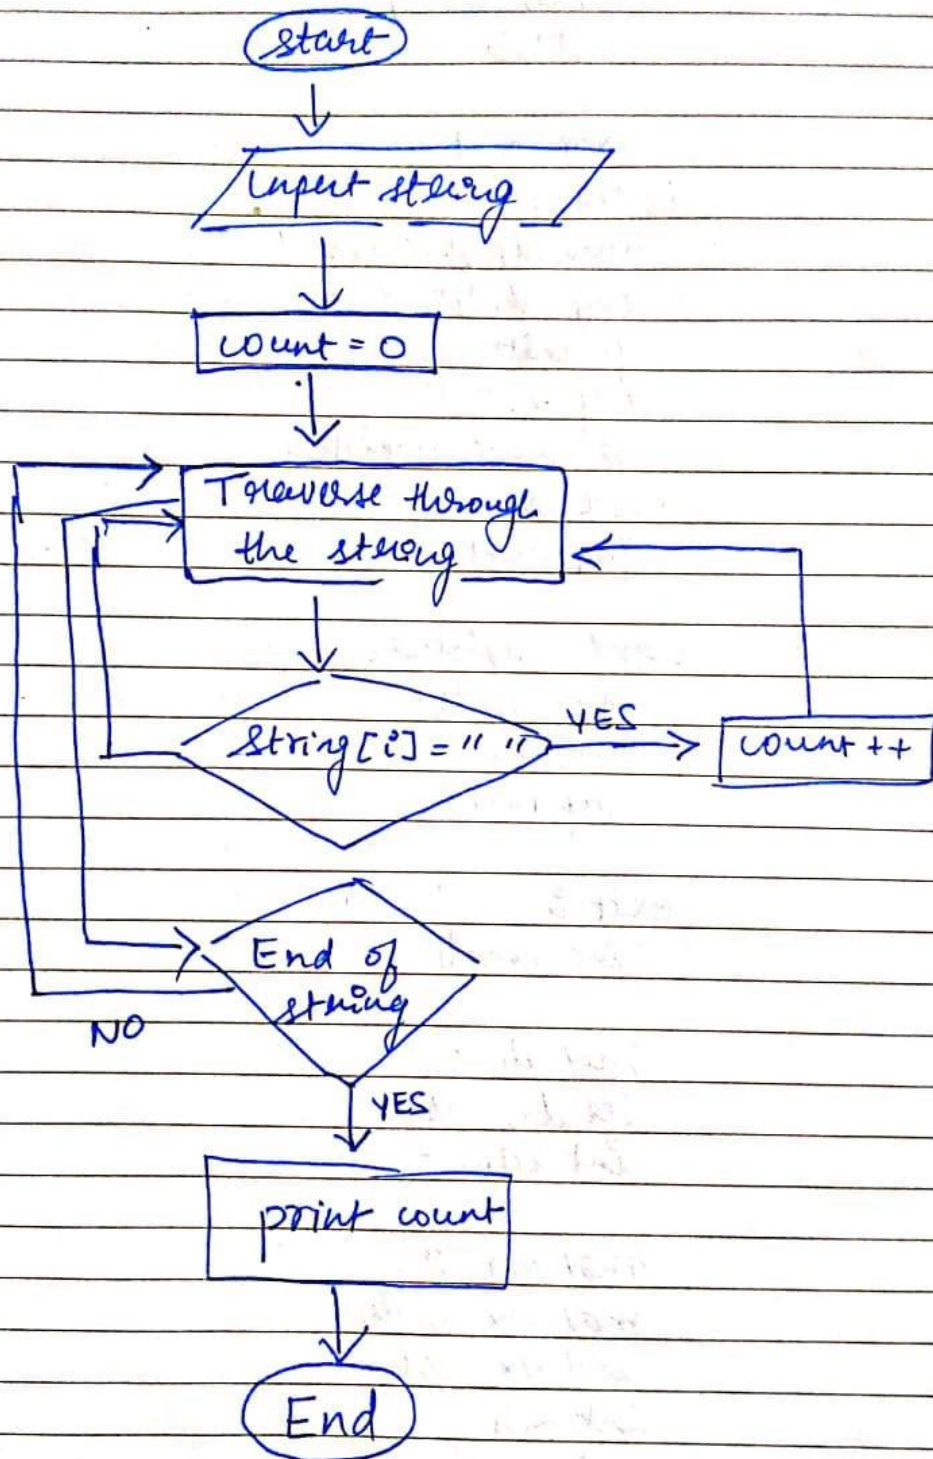 start
Input string
count = 0
Traverse through
the string
String[i] = " "
YES
count ++
End of
string
NO
YES
print count
End